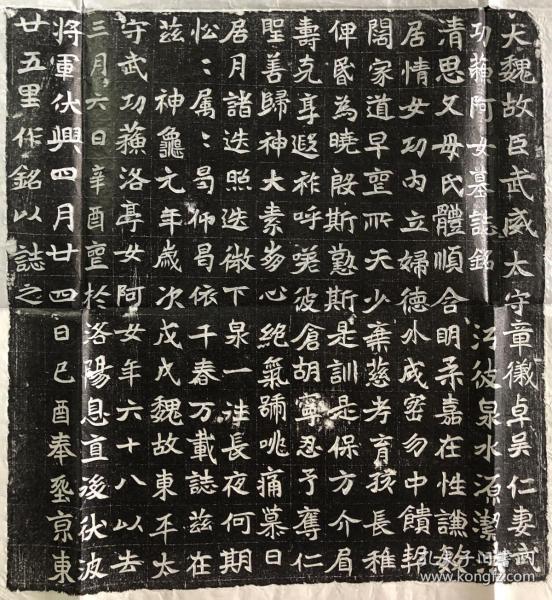 大魏故臣武威太守童徽卓吴仁妻武
功蘇阿女墓誌銘 江彼泉水河潔
清思文母氏體順合明柔嘉在性謙效
居情女功内立婦德外成密勿中饋契
闊家道早㝛所天少棄慈考育孩長稚
俾昏為曉殷斯懃斯是訓是保方介眉
壽克享遐祚呼嗟彼倉胡寧忍予奪仁
聖善歸神大素崩心絶氣號咷痛慕日
居月諸迭照迭微下泉一往長夜何期
忪忪属属曷仰曷依千春万載誌茲在
茲 神龜元年歲次戊戌魏故東平太
守武功蘇洛葶女阿女年六十八以去
三月六日辛酉㝛於洛陽息直後伏波
將軍伏興四月廿四日己酉奉𦵏京東
廿五里作銘以誌之
孔夫子旧书网
www.kongfz.com